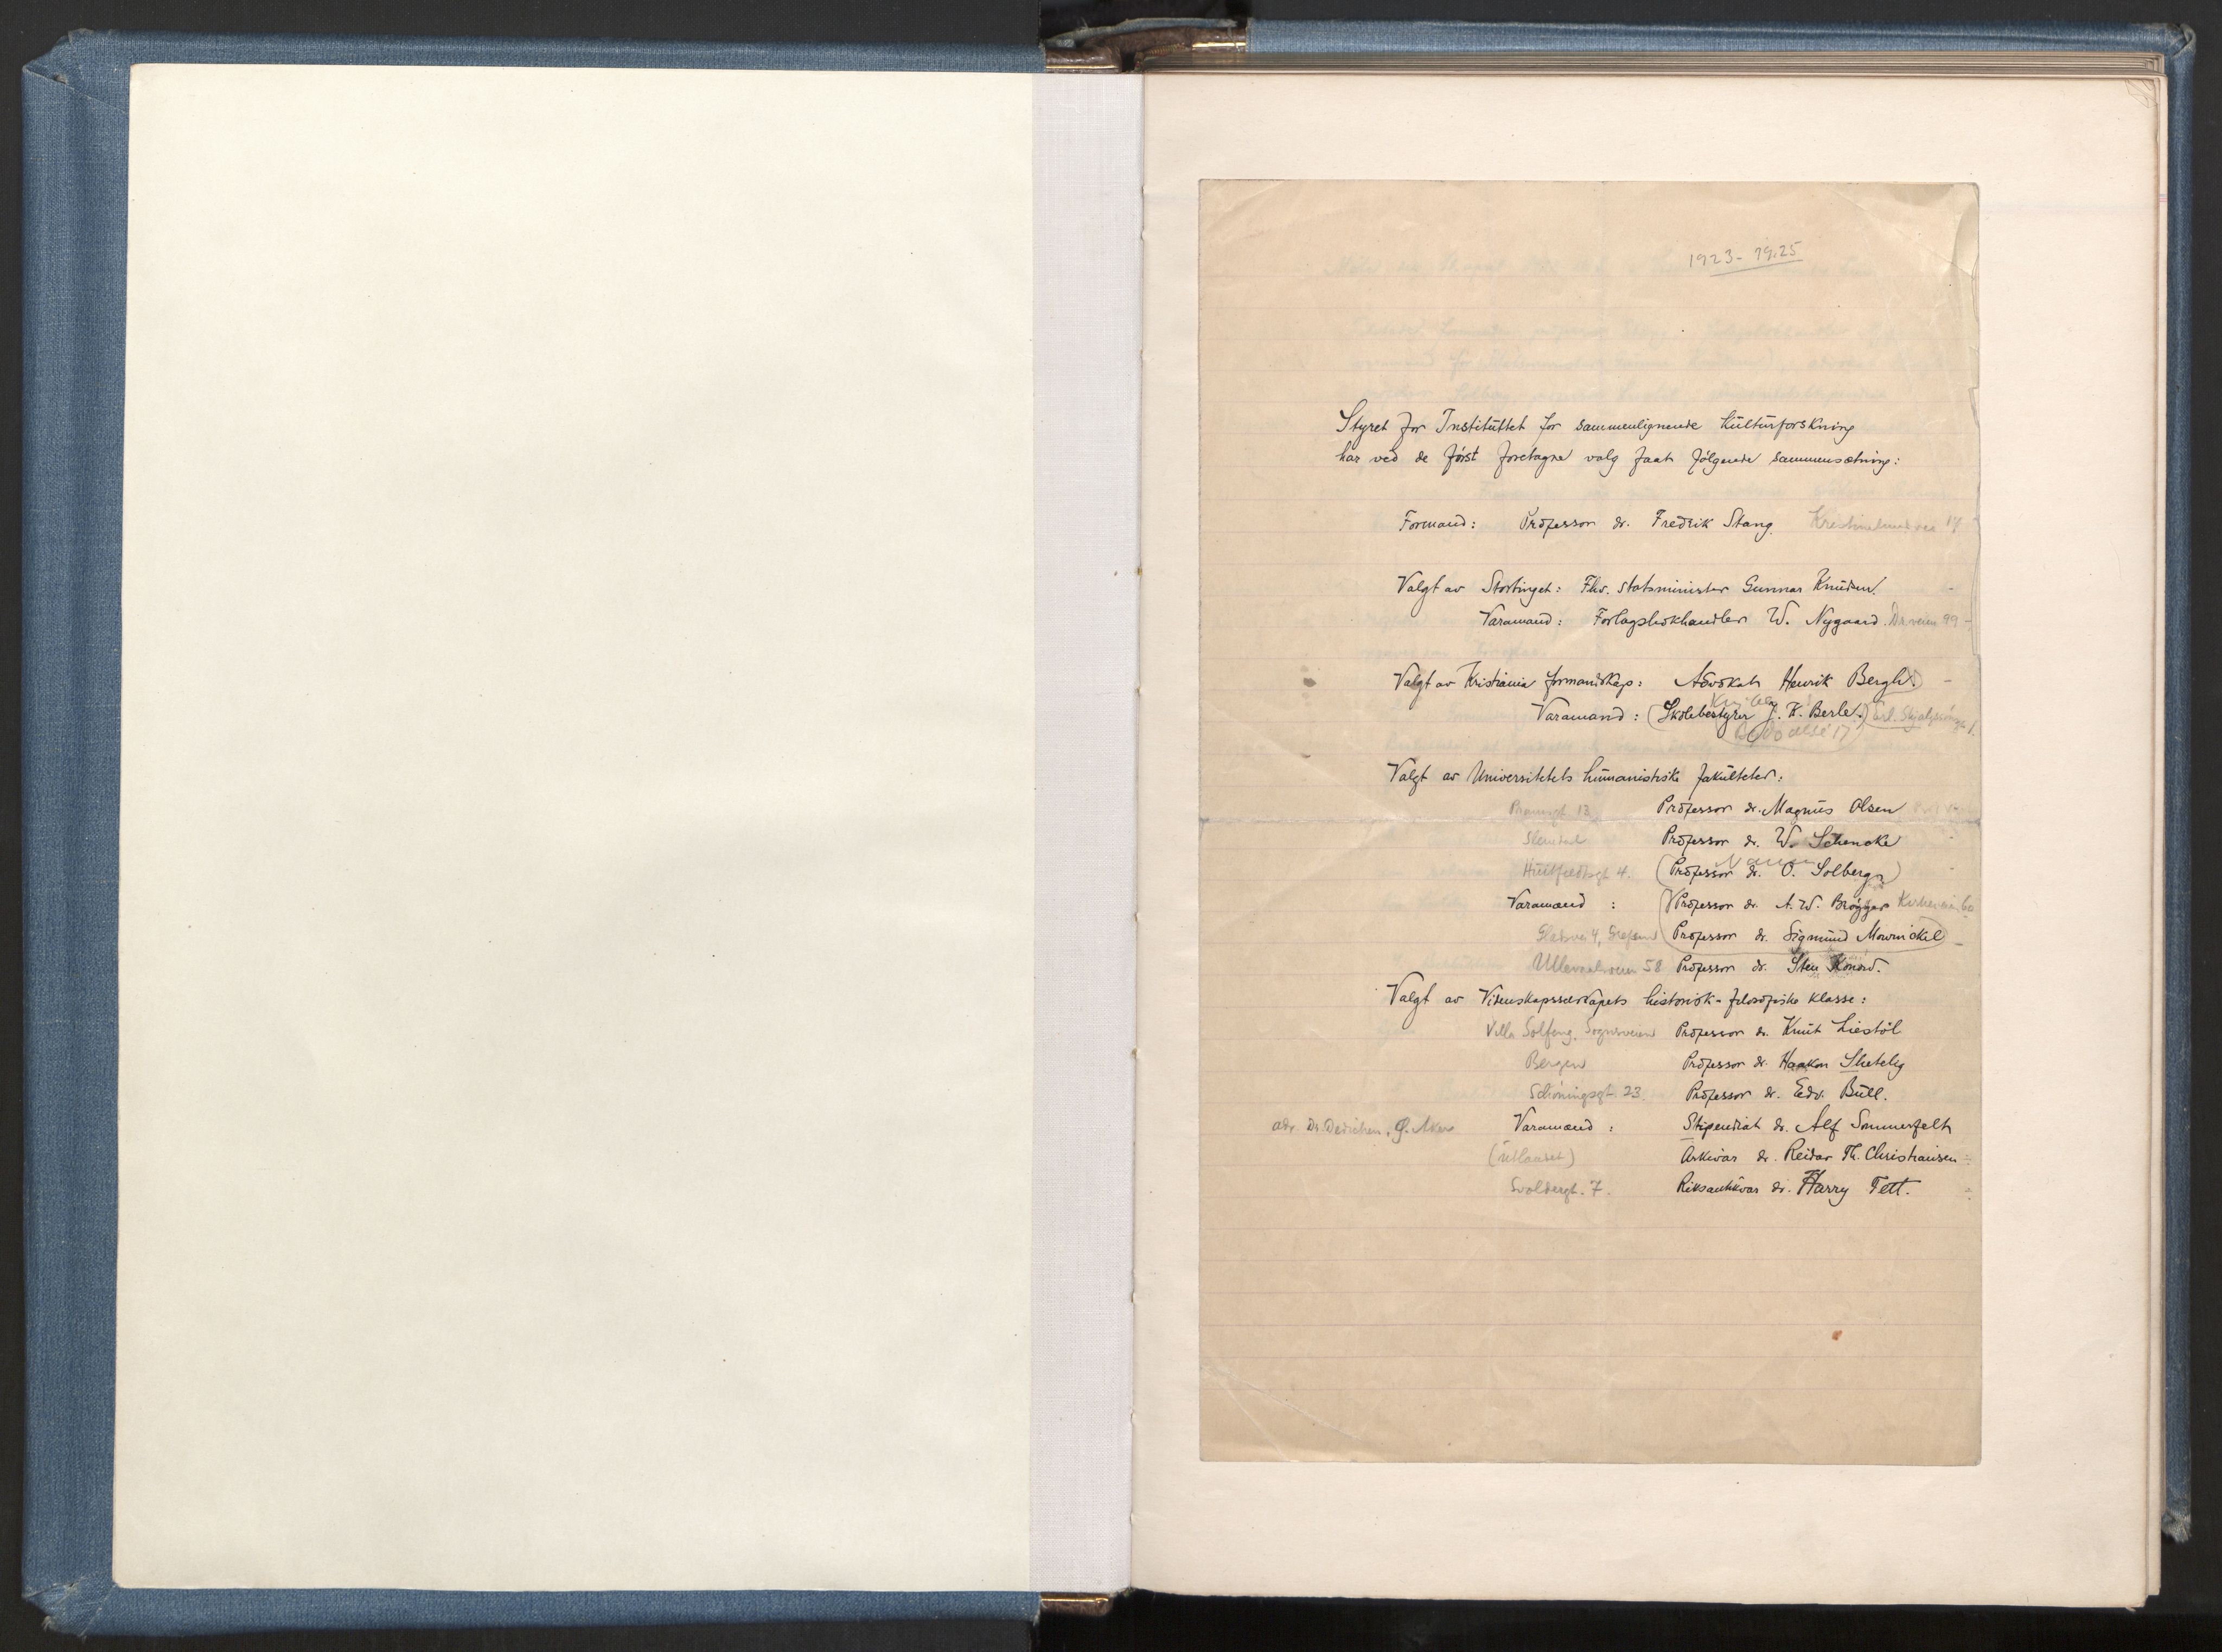 1923-1925
Styret for Instituttet for sammenlignende Kulturforskning
har ved de først foretagne valg faat følgende sammensætning:
Formand: Professor dr. Fredrik Stang. Kristinelundvei
Valgt av Stortinget: Fhv. statsminister Gunnar Knudsen.
Varamand: Forlagsbokhandler W. Nygaard. Dr.veien 99
Valgt av Kristiania formandskap: Advokat Henrik Bergh.
Varamand: (Skolebestyrer J. K. Berle.)
Valgt av Universitetets humanistiske fakulteter:
Professor dr. Magnus Olsen
Professor dr. W. Schencke
Huitfeldtsgt 4. (Professor dr. O. Solberg)
Varamænd : Professor dr. A. W. Brøgger Kirkeveien 60
Professor dr. Sigmund Mowinckel
Ullevaalsveien 58 Professor dr. Sten Konow.
Valgt av Videnskapsselskapets historisk-filosofiske klasse:
Villa Solfeng, Sognsveien Professor dr. Knut Liestöl
Bergen Professor dr. Haakon Shetelig
Schöningsgt. 23. Professor dr. Edv. Bull.
adr. Dr. Dedichen, Ø. Aker Varamænd : Stipendiat dr. Alf Sommerfelt
(utlandet) Arkivar dr. Reidar Th. Christiansen
Svoldergt. 7. Riksantikvar dr. Harry Fett.